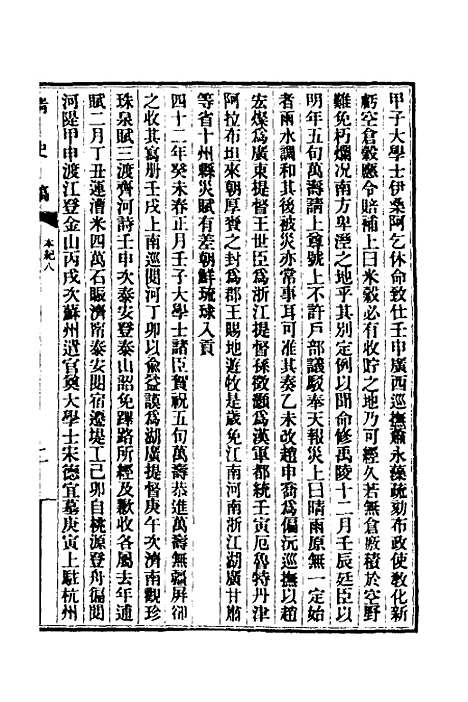 甲子大學士伊桑阿乞休命致仕壬申廣西巡撫蕭永藻疏劾布政使教化新
虧空倉穀應令賠補上曰米穀必有收貯之地乃可經久若無倉廒積於空野
難免朽爛況南方卑溼之地乎其別定例以聞命修禹陵十二月壬辰廷臣以
明年五旬萬壽請上尊號上不許戶部議駁奉天報災上曰晴雨原無一定始
者雨水調和其後被災亦常事耳可准其奏乙未改趙申喬爲偏沅巡撫以趙
宏燦爲廣東提督王世臣爲浙江提督孫徵灝爲漢軍都統壬寅厄魯特丹津
阿拉布坦來朝厚賚之封爲郡王賜地遊牧是歲免江南河南浙江湖廣甘肅
等省十州縣災賦有差朝鮮琉球入貢
四十二年癸未春正月壬子大學士諸臣賀祝五旬萬壽恭進萬壽無疆屏卻
之收其寫册壬戌上南巡閱河丁卯以俞益謨爲湖廣提督庚午次濟南觀珍
珠泉賦三渡齊河詩壬申次泰安登泰山詔免蹕路所經及歉收各屬去年逋
賦二月丁丑運漕米四萬石賑濟甯泰安閱宿遷堤工己卯自桃源登舟徧閱
河隄甲申渡江登金山丙戌次蘇州遣官奠大學士宋德宜墓庚寅上駐杭州
清史稿
本紀八